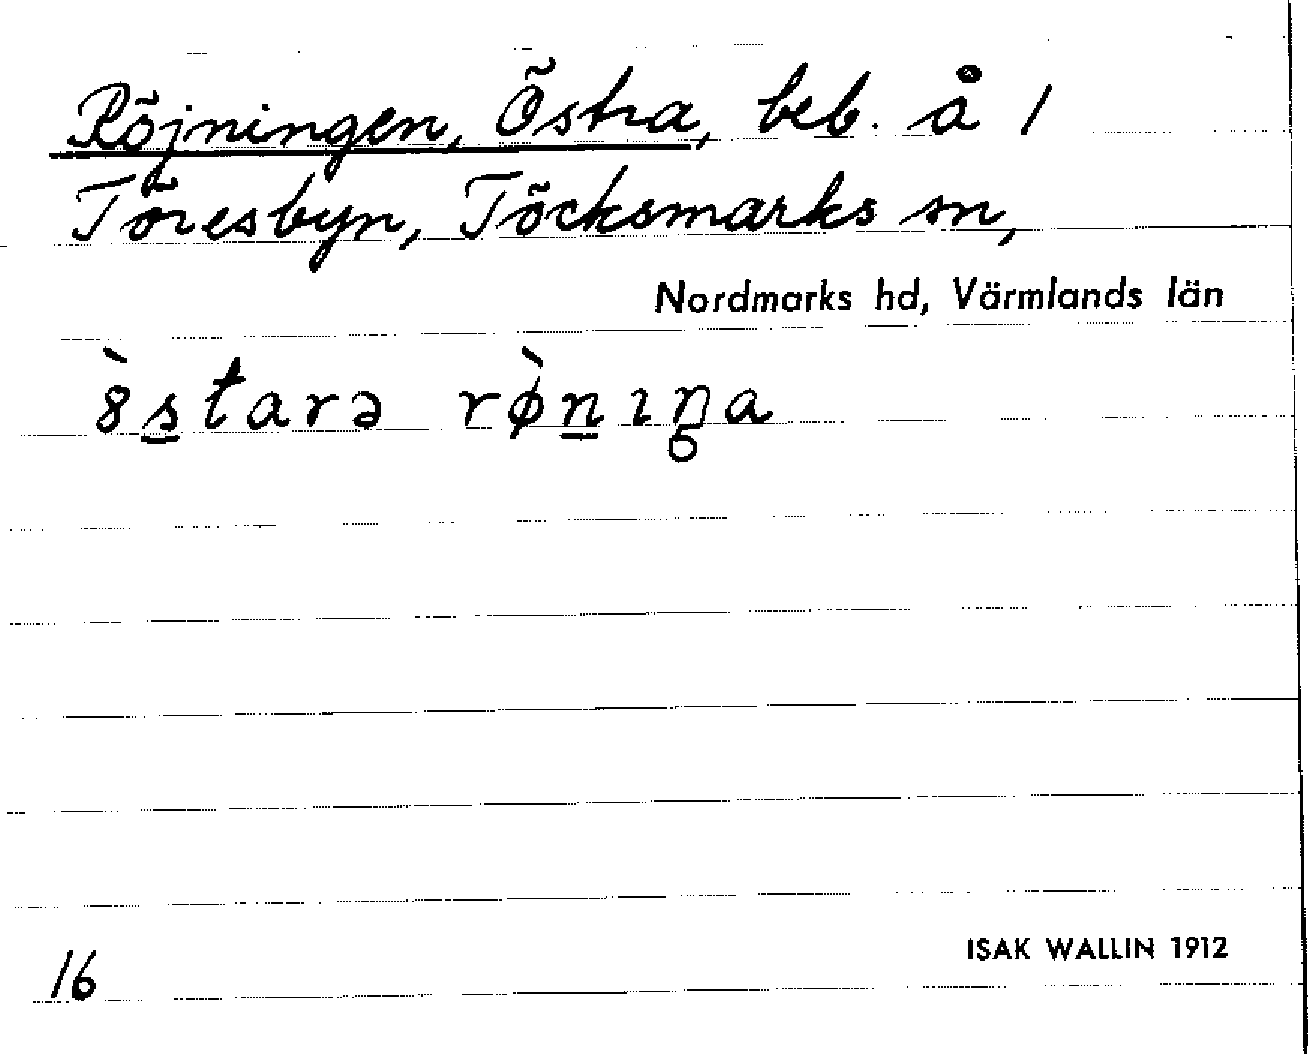 Röjningen, Östra, beb. å 1
Töresbyn, Töcksmarks sn,
Nordmarks hd, Värmlands län
8̀s̲tarə rø̀n̲ıŋa
ISAK WALLIN 1912
16